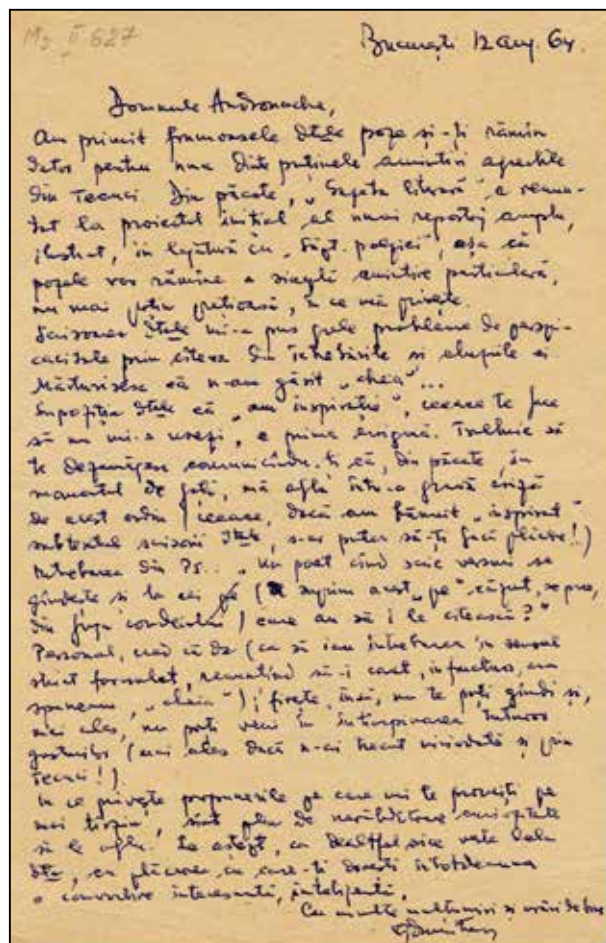 Ms II 627
București 12 aug. 64.
Domnule Andronache,
Am primit frumoasele dtale poze și-ți rămîn
dator pentru una din puținele amintiri agreabile
din Tecuci. Din păcate, "Gazeta literară" a renun-
țat la proiectul inițial al unui reportaj amplu,
ilustrat, în legătură cu "Săpt. poeziei", așa că
pozele vor rămîne o simplă amintire particulară,
nu mai puțin prețioasă, în ce mă privește.
Scrisoarea dtale mi-a pus grele probleme de perspi-
cacitate prin cîteva din întrebările și aluziile ei.
Mărturisesc că n-am găsit "cheia"...
Supoziția dtale că "am inspirație", ceeace te face
să nu mi-o urezi, e prima enigmă. Trebuie să
te dezamăgesc comunicîndu-ți că, din păcate, în
momentul de față, mă aflu într-o gravă criză
de acest ordin (ceeace, dacă am bănuit "inspirat"
subtextul scrisorii dtale, s-ar putea să-ți facă plăcere!)
Întrebarea din PS.: "Un poet cînd scrie versuri se
gîndește și la cei pe (suprim acest "pe" căzut,
din fuga condeiului) care au să i le citească?"
Personal, cred că da (ca să iau întrebarea în sensul
strict formulat, renunțînd să-i caut, infructuos, cum
spuneam, "cheia"); firește, însă, nu te poți gîndi și,
mai ales, nu poți veni în întîmpinarea tuturor
gusturilor (mai ales dacă n-ai trecut niciodată și prin
Tecuci!).
În ce privește propunerile pe care mi le promiți pe
mai tîrziu, sînt plin de nerăbdătoare curiozitate
să le aflu. Le aștept, ca dealtfel orice veste dela
dta, cu plăcerea cu care-ți dorești întotdeauna
o convorbire interesantă, inteligentă.
Cu multe mulțumiri și urări de bine